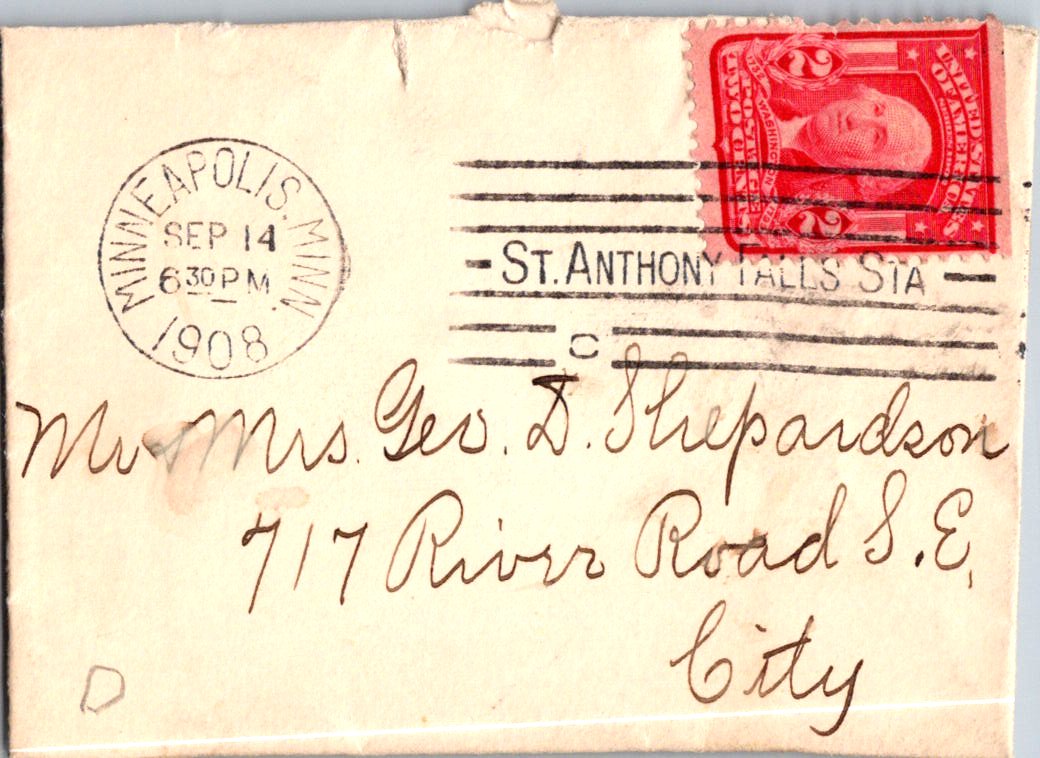 MINNEAPOLIS. MINN.
SEP 14
6 30 PM.
1908
ST. ANTHONY FALLS STA
C
UNITED STATES
OF AMERICA
2 2
1732 WASHINGTON 1799
POSTAGE
TWO CENTS
Mr & Mrs. Geo. D. Shepardson
717 River Road S.E,
City
D